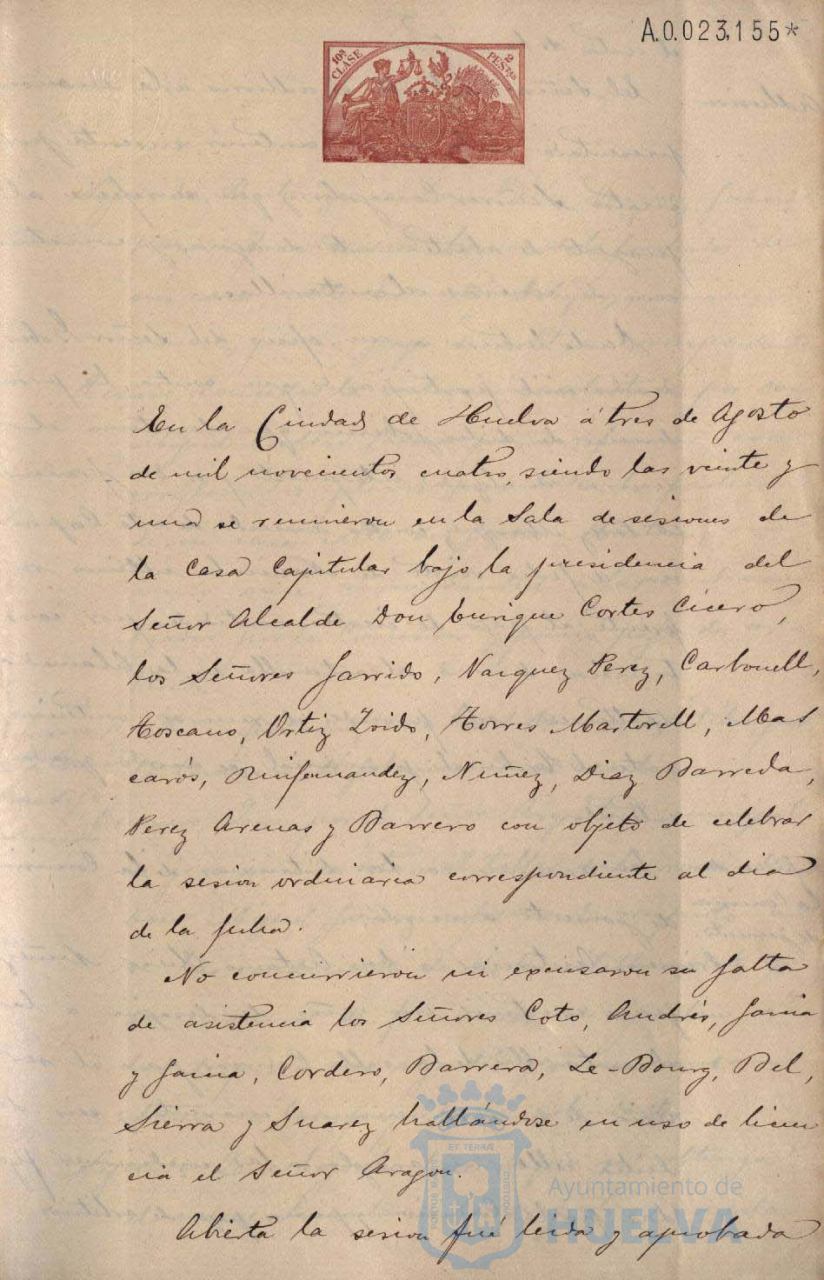 A.0.023,155*
10ª CLASE
2 PESTAS
En la Ciudad de Huelva á tres de Agosto
de mil novecientos cuatro, siendo las veinte y
una se reunieron en la Sala de sesiones de
la Casa Capitular bajo la presidencia del
Señor Alcalde Don Enrique Cortes Cicero,
los Señores Garrido, Vazquez Perez, Carbonell,
Toscano, Ortiz Zoido, Torres Martorell, Mas
carós, Quifernandez, Nuñez, Diaz Barreda,
Perez Arenas y Barrero con objeto de celebrar
la sesion ordinaria correspondiente al dia
de la fecha.
No concurrieron ni excusaron su falta
de asistencia los Señores Coto, Andrés, Garcia
y Garcia, Cordero, Barrera, Le-Bourg, Bel,
Sierra y Suarez hallándose en uso de licen
cia el Señor Aragon.
Abierta la sesion fué leida y aprobada
Ayuntamiento de
HUELVA